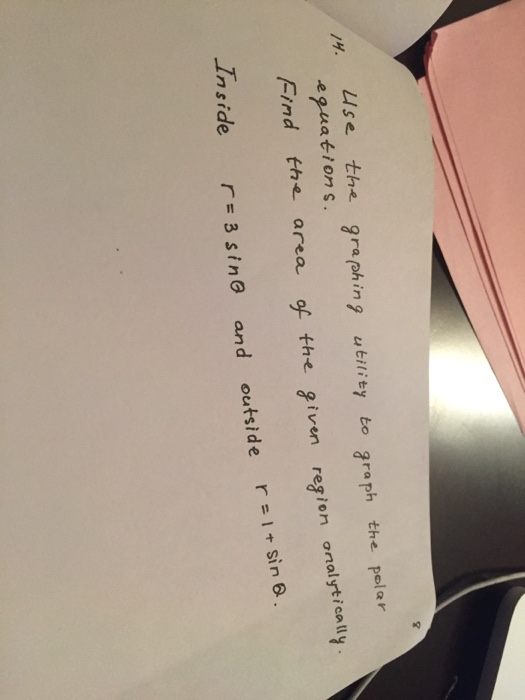 8
14. Use the graphing utility to graph the polar
equations.
Find the area of the given region analytically.
Inside r = 3 sinθ and outside r = 1 + sinθ.